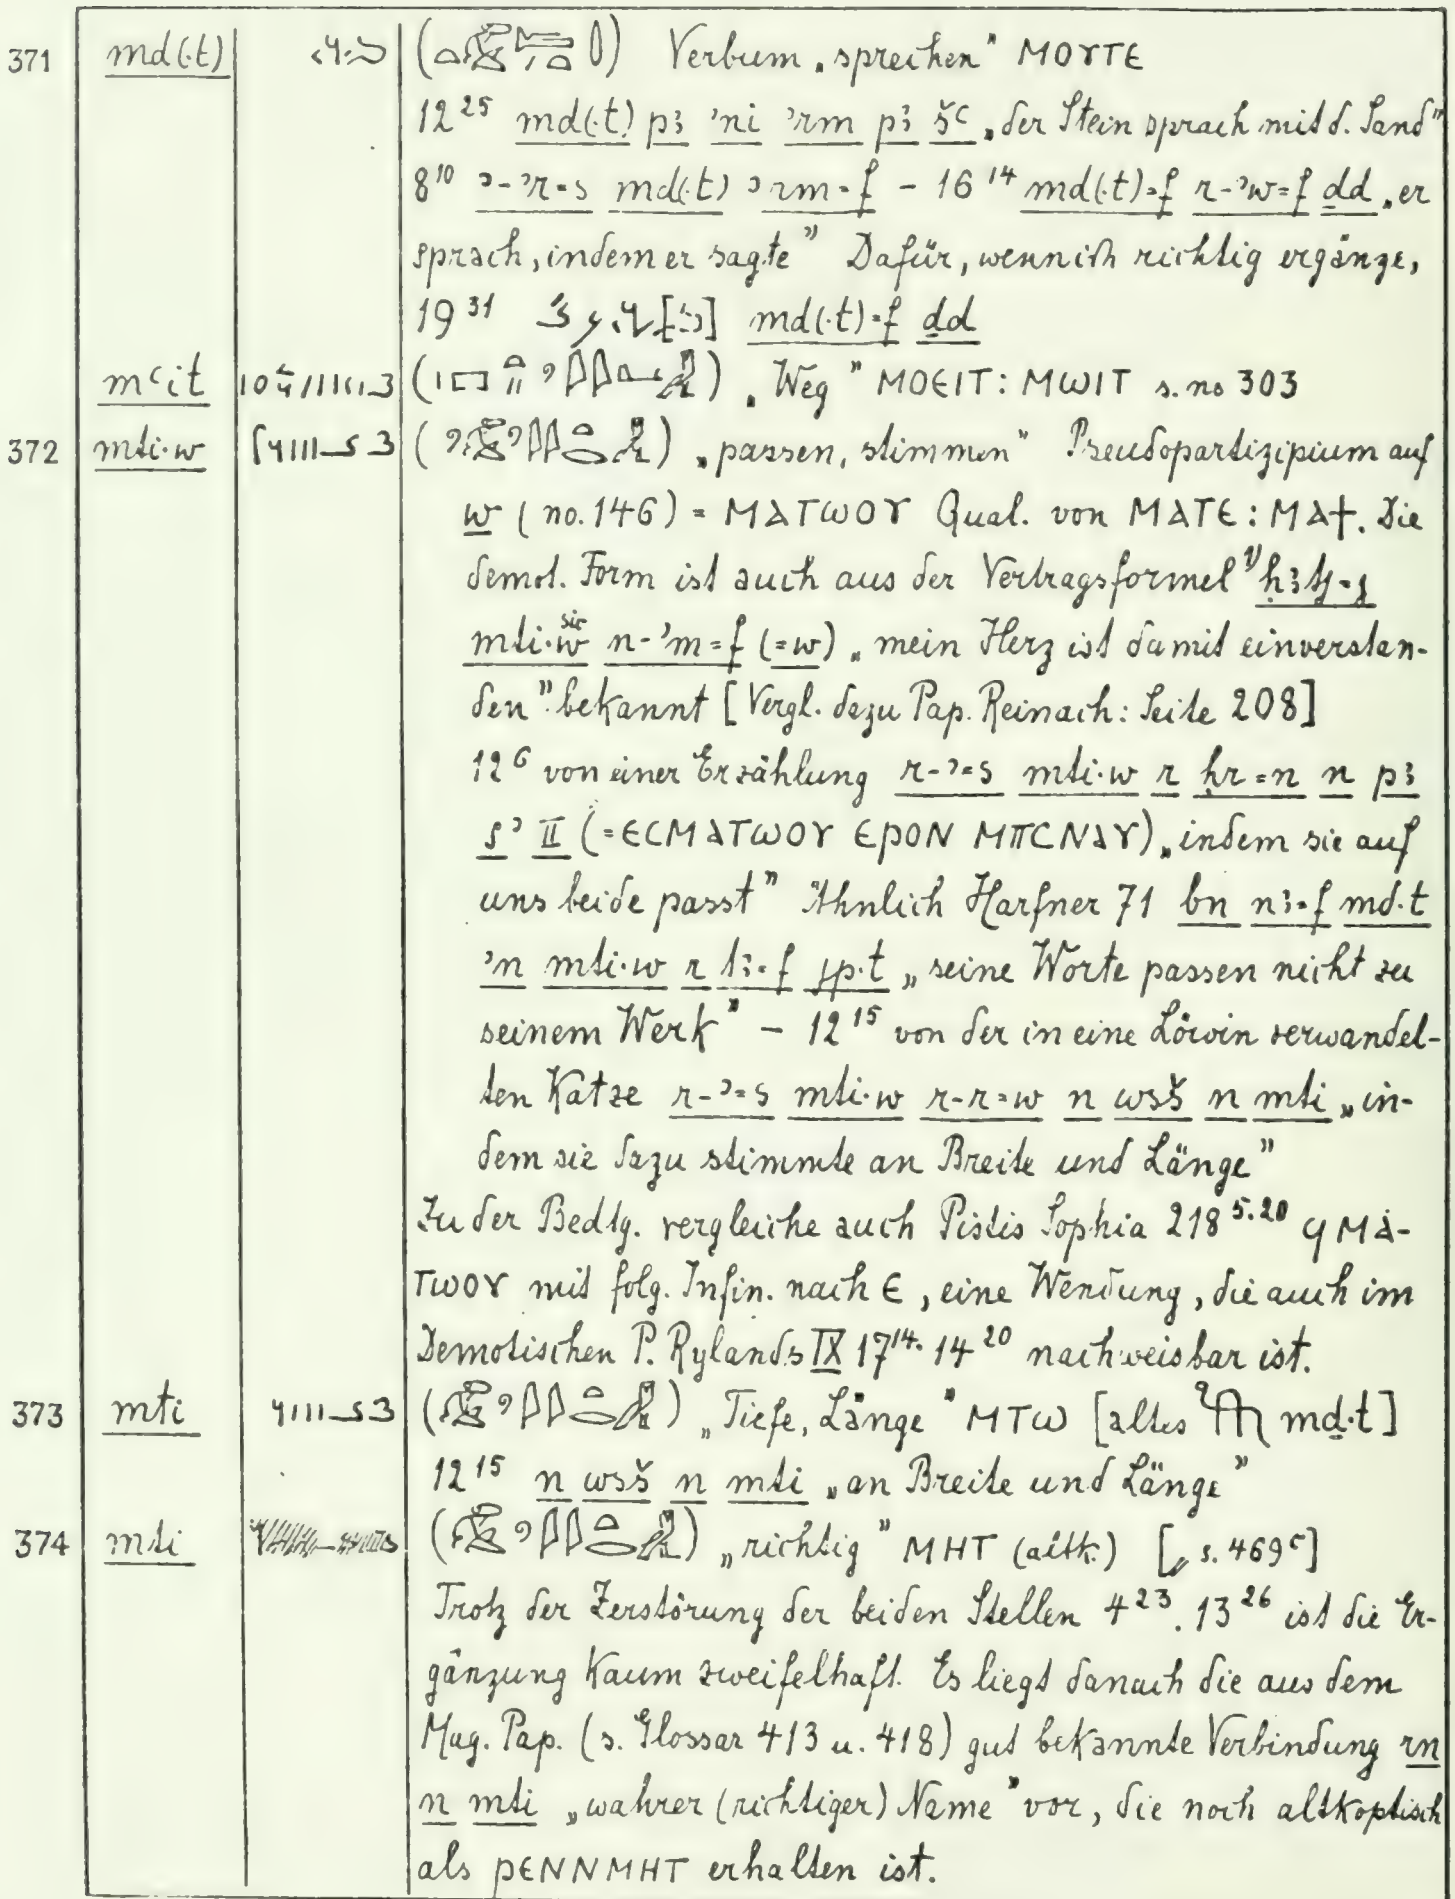 371 md(·t) ( ) Verbum „sprechen" ⲙⲟⲩⲧⲉ
12²⁵ md(·t) pꜣ ’ni ’rm pꜣ šꜥ „der Stein sprach mit d. Sand"
8¹⁰ ’-’r=s md(·t) ’rm=f – 16¹⁴ md(·t)=f r-’w=f ḏd „er
sprach, indem er sagte" Dafür, wenn ich richtig ergänze,
19³¹ md(·t)=f ḏd
mꜥit ( ) „Weg" ⲙⲟⲉⲓⲧ: ⲙⲱⲓⲧ s. no 303
372 mti·w ( ) „passen, stimmen" Pseudopartizipium auf
w (no. 146) = ⲙⲁⲧⲱⲟⲩ Qual. von ⲙⲁⲧⲉ: ⲙⲁϯ. Die
demot. Form ist auch aus der Vertragsformel ¹⁾
mti·w (sic) n-’m=f (=w) „mein Herz ist damit einverstan-
den" bekannt [Vergl. dazu Pap. Reinach: Seite 208]
12⁶ von einer Erzählung r-’=s mti·w r ḥr=n n pꜣ
s’ II (= ⲉⲥⲙⲁⲧⲱⲟⲩ ⲉⲣⲟⲛ ⲙⲡⲥⲛⲁⲩ) „indem sie auf
uns beide passt" Ähnlich Harfner 71 bn nꜣ=f md·t
’n mti·w r tꜣ=f jp·t „seine Worte passen nicht zu
seinem Werk" – 12¹⁵ von der in eine Löwin verwandel-
ten Katze r-’=s mti·w r-r=w n wsš n mti „in-
dem sie dazu stimmte an Breite und Länge"
Zu der Bedtg. vergleiche auch Pistis Sophia 218⁵·²⁰ ϥⲙⲁ-
ⲧⲱⲟⲩ mit folg. Infin. nach ⲉ, eine Wendung, die auch im
Demotischen P. Rylands IX 17¹⁴· 14²⁰ nachweisbar ist.
373 mti ( ) „Tiefe, Länge" ⲙⲧⲱ [altes mḏ·t]
12¹⁵ n wsš n mti „an Breite und Länge"
374 mti ( ) „richtig" ⲙⲏⲧ (altk.) [„ s. 469ᶜ]
Trotz der Zerstörung der beiden Stellen 4²³. 13²⁶ ist die Er-
gänzung kaum zweifelhaft. Es liegt danach die aus dem
Mag. Pap. (s. Glossar 413 u. 418) gut bekannte Verbindung rn
n mti „wahrer (richtiger) Name" vor, die noch altkoptisch
als ⲣⲉⲛⲛⲙⲏⲧ erhalten ist.